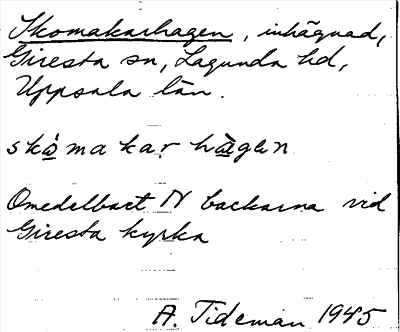 Skomakarhagen, inhägnad,
Giresta sn, Lagunda hd,
Uppsala län.
skòmakar hàgen
Omedelbart N backarna vid
Giresta kyrka
A. Tideman 1945